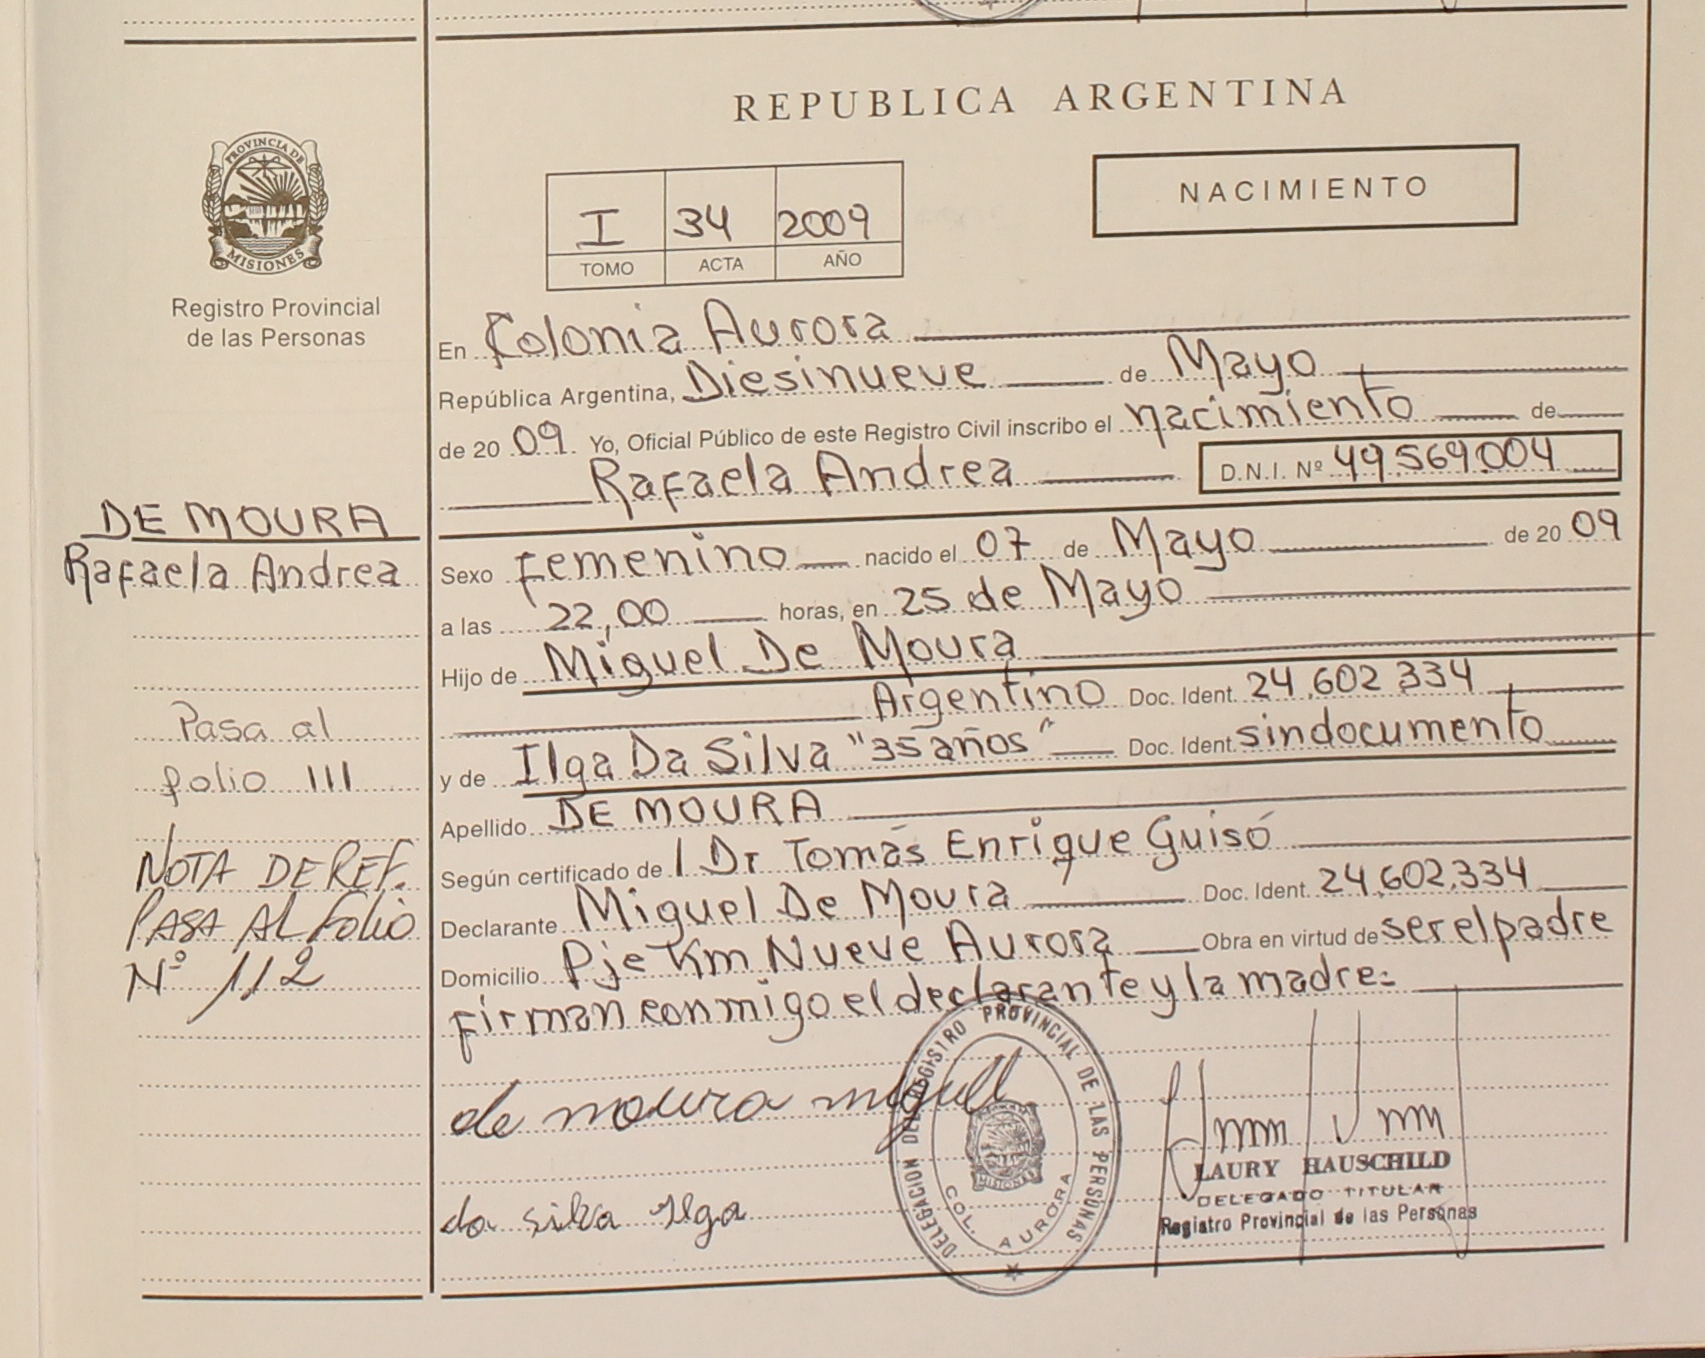 REPUBLICA ARGENTINA
PROVINCIA DE
MISIONES
Registro Provincial
de las Personas
I 34 2009
TOMO ACTA AÑO
NACIMIENTO
En Colonia Aurora
República Argentina, Diesinueve de Mayo
de 20 09 Yo, Oficial Público de este Registro Civil inscribo el nacimiento de
Rafaela Andrea D.N.I. Nº 49.569.004
DE MOURA
Rafaela Andrea
Sexo Femenino nacido el 07 de Mayo de 20 09
a las 22,00 horas, en 25 de Mayo
Hijo de Miguel De Moura
Argentino Doc. Ident. 24.602.334
y de Ilga Da Silva "35 años" Doc. Ident. sin documento
Apellido DE MOURA
Según certificado de l Dr Tomás Enrique Guisó
Declarante Miguel De Moura Doc. Ident. 24.602.334
Domicilio Pje Km Nueve Aurora Obra en virtud de ser el padre
firman conmigo el declarante y la madre=
Pasa al
folio 111
NOTA DE REF.
PASA AL FOLIO
Nº 112
de moura miguel
da silva Ilga
DELEGACION DEL REGISTRO PROVINCIAL DE LAS PERSONAS
MISIONES
COL. AURORA
LAURY HAUSCHILD
DELEGADO TITULAR
Registro Provincial de las Personas